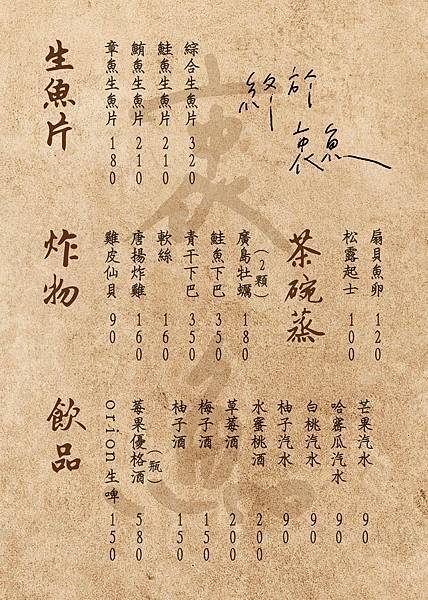 終於
衷魚
生魚片
章魚生魚片 180
鮪魚生魚片 210
鮭魚生魚片 210
綜合生魚片 320
炸物
雞皮仙貝 90
唐揚炸雞 160
軟絲 160
青干下巴 350
鮭魚下巴 350
廣島牡蠣(2顆) 180
茶碗蒸
松露起士 100
扇貝魚卵 120
飲品
orion生啤 150
莓果優格酒(瓶) 580
柚子酒 150
梅子酒 150
草莓酒 200
水蜜桃酒 200
柚子汽水 90
白桃汽水 90
哈蜜瓜汽水 90
芒果汽水 90